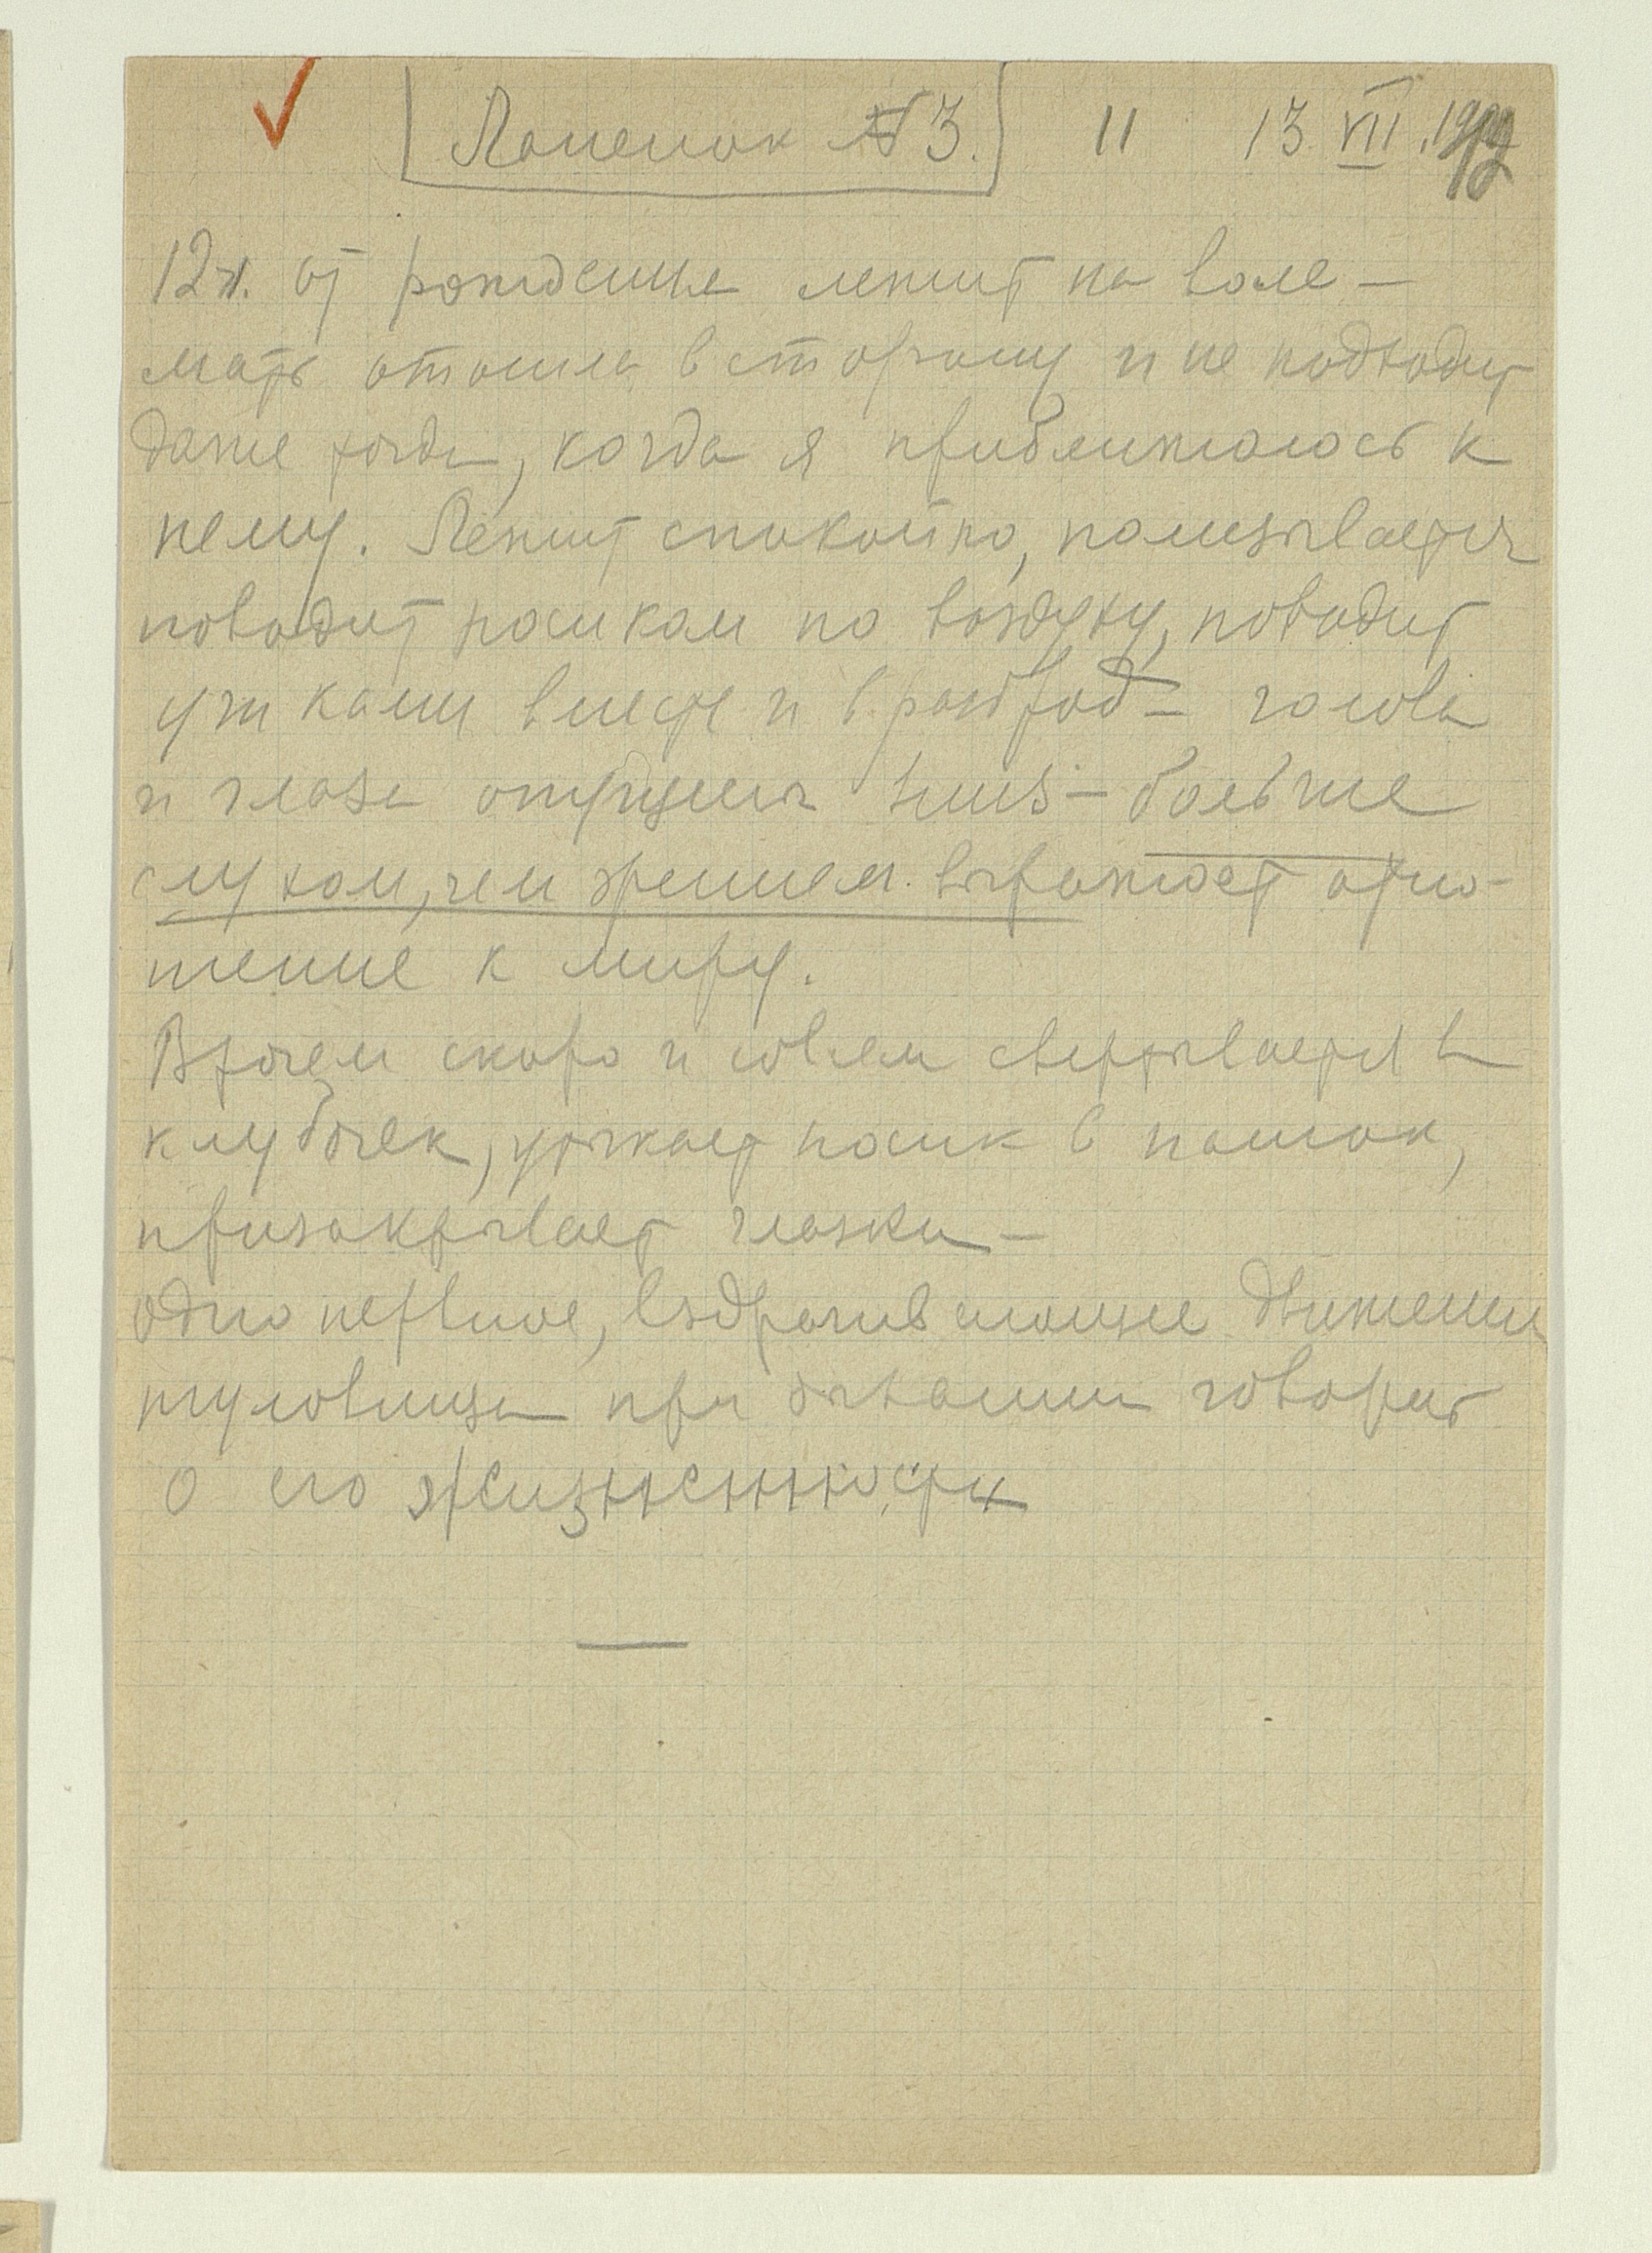 Ланенок №3. 11 13 VII.
12 ч. от рождения лежит на воле –
мать отошла в сторону и не подходит
даже тогда, когда я приближаюсь к
нему. Лежит спокойно,
поводит носиком по воздуху, поводит
ушками вместе и в разброд – голова
и глаза опущены вниз – больше
слухом, чем зрением выражает отно-
шение к миру.
Впрочем скоро и совсем свертывается в
клубочек, утыкает носик в пашок,
призакрывает глазки –
одно нервное, вздрагивающее движение
туловища при дыхании говорит
о его жизненности